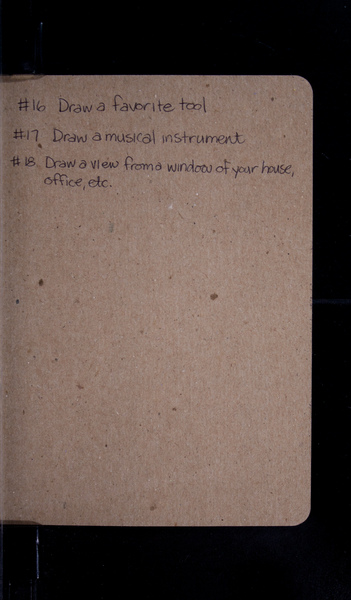 #16 Draw a favorite tool
#17 Draw a musical instrument
#18. Draw a view from a window of your house,
office, etc.